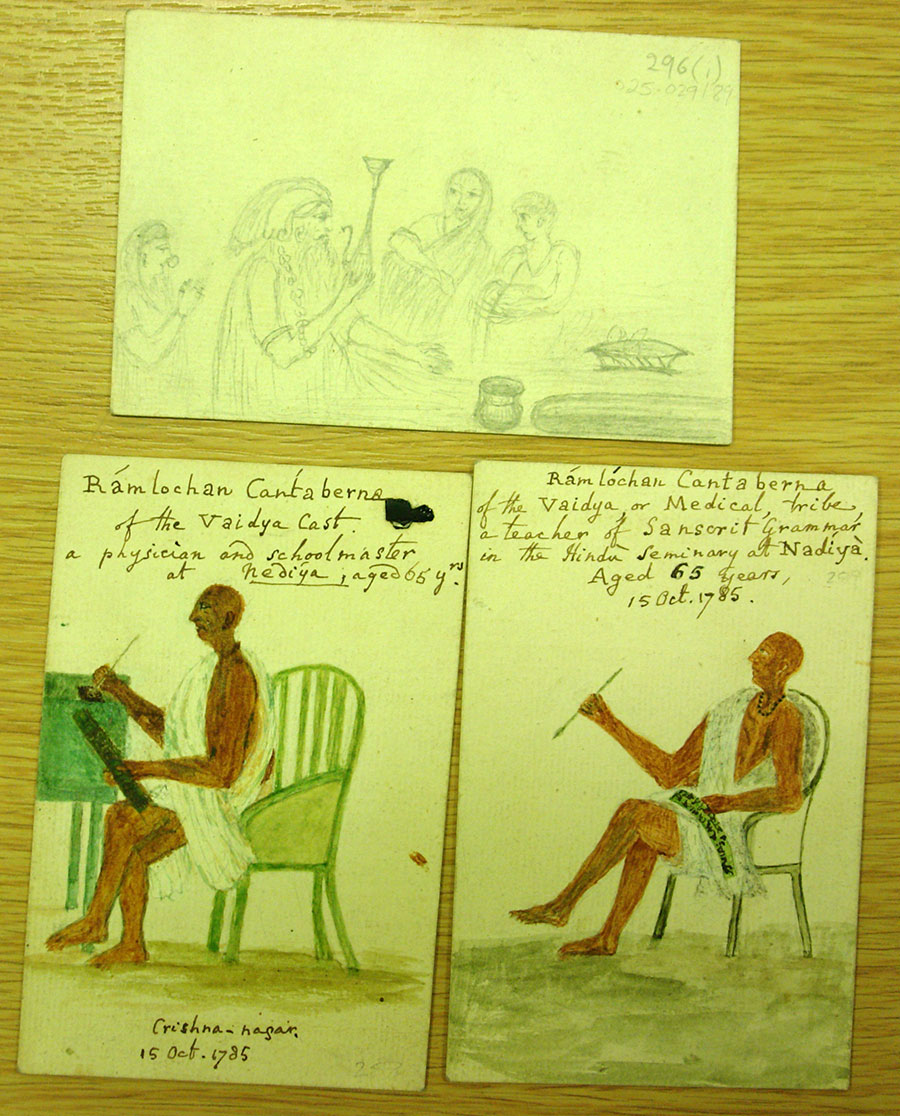 296(i)
Rámlóchan Cantaberna
of the Vaidya Cast.
a physician and schoolmaster
at Nediya; aged 65 yrs.
Crishna-nagar.
15 Oct. 1785
Rámlóchan Cantaberna
of the Vaidya, or Medical, tribe,
a teacher of Sanscrit Grammar
in the Hindû seminary at Nadiyà.
Aged 65 years,
15 Oct. 1785.